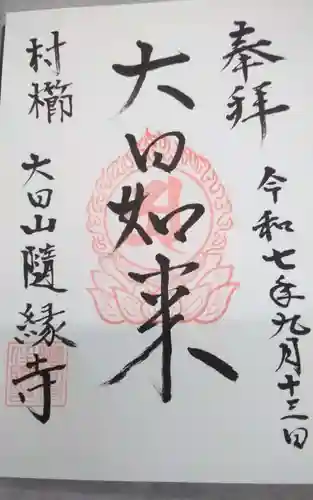 奉拝
令和七年九月十三日
大日如来
村櫛
大日山隨縁寺